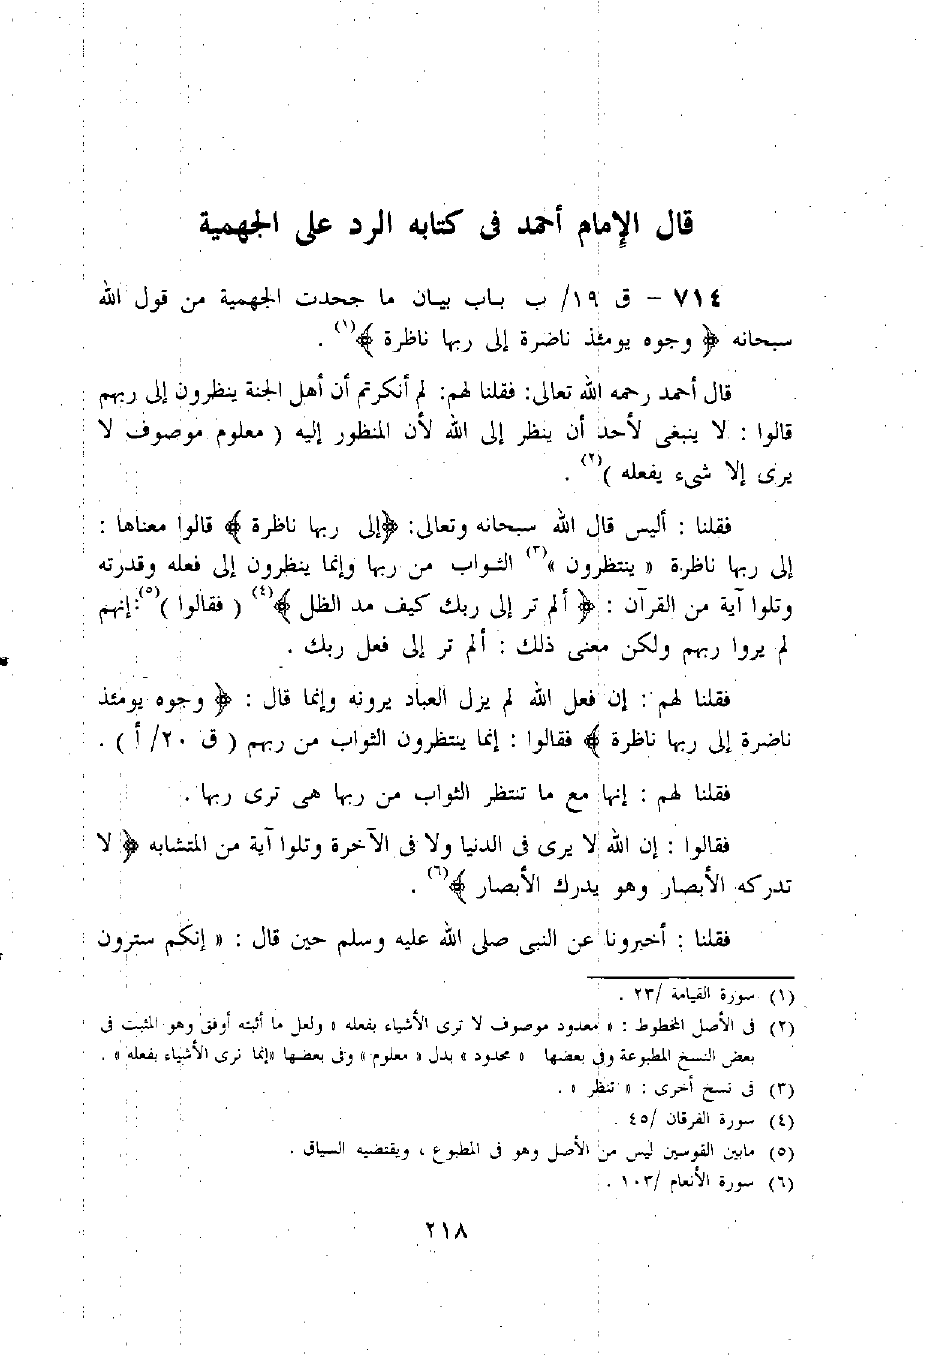 قال الإمام أحمد فى كتابه الرد على الجهمية
٧١٤ - ق ١٩/ ب باب بيان ما جحدت الجهمية من قول الله
سبحانه ﴿ وجوه يومئذ ناضرة إلى ربها ناظرة ﴾(١) .
قال أحمد رحمه الله تعالى: فقلنا لهم: لم أنكرتم أن أهل الجنة ينظرون إلى ربهم
قالوا : لا ينبغى لأحد أن ينظر إلى الله لأن المنظور إليه ( معلوم موصوف لا
يرى إلا شىء يفعله )(٢) .
فقلنا : أليس قال الله سبحانه وتعالى: ﴿إلى ربها ناظرة ﴾ قالوا معناها :
إلى ربها ناظرة « ينتظرون »(٣) الثواب من ربها وإنما ينظرون إلى فعله وقدرته
وتلوا آية من القرآن : ﴿ ألم تر إلى ربك كيف مد الظل ﴾(٤) ( فقالوا )(٥): إنهم
لم يروا ربهم ولكن معنى ذلك : ألم تر إلى فعل ربك .
فقلنا لهم : إن فعل الله لم يزل العباد يرونه وإنما قال : ﴿ وجوه يومئذ
ناضرة إلى ربها ناظرة ﴾ فقالوا : إنما ينتظرون الثواب من ربهم ( ق ٢٠/ أ ) .
فقلنا لهم : إنها مع ما تنتظر الثواب من ربها هى ترى ربها .
فقالوا : إن الله لا يرى فى الدنيا ولا فى الآخرة وتلوا آية من المتشابه ﴿ لا
تدركه الأبصار وهو يدرك الأبصار ﴾(٦) .
فقلنا : أخبرونا عن النبى صلى الله عليه وسلم حين قال : « إنكم سترون
(١) سورة القيامة /٢٣ .
(٢) فى الأصل المخطوط : « معدود موصوف لا ترى الأشياء بفعله » ولعل ما أثبته أوفق وهو المثبت فى
بعض النسخ المطبوعة وفى بعضها « محدود » بدل « معلوم » وفى بعضها «إنما نرى الأشياء بفعله » .
(٣) فى نسخ أخرى : « تنظر » .
(٤) سورة الفرقان /٤٥ .
(٥) مابين القوسين ليس من الأصل وهو فى المطبوع ، ويقتضيه السياق .
(٦) سورة الأنعام /١٠٣ .
٢١٨